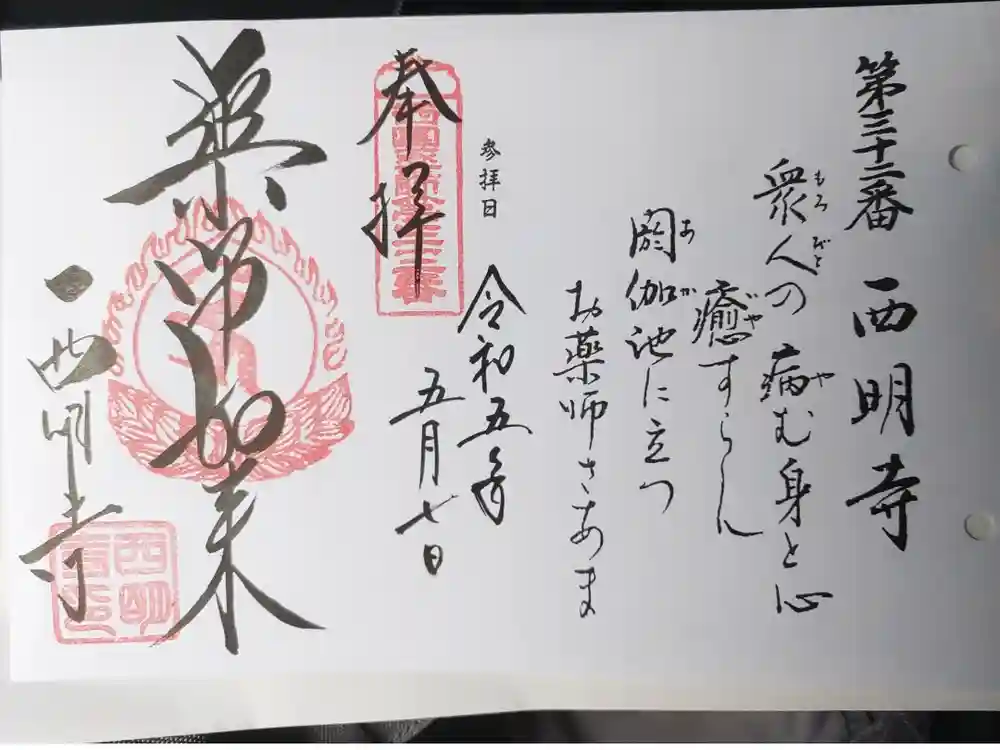 第三十二番 西明寺
衆人の病む身と心
もろびと や
癒すらん
いや
閼伽池に立つ
あか
お薬師さあま
参拝日
令和五年
五月七日
奉拝
西国薬師第三十二番
薬師如来
西明寺
西明